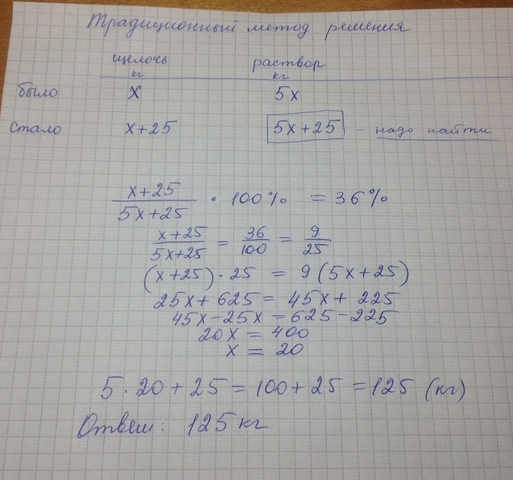 Традиционный метод решения
щелочь раствор
кг кг
было x 5x
стало x+25 5x+25 - надо найти
x+25/5x+25 · 100% = 36%
x+25/5x+25 = 36/100 = 9/25
(x+25)·25 = 9(5x+25)
25x+625 = 45x+225
45x-25x = 625-225
20x = 400
x = 20
5·20+25 = 100+25 = 125 (кг)
Ответ: 125 кг